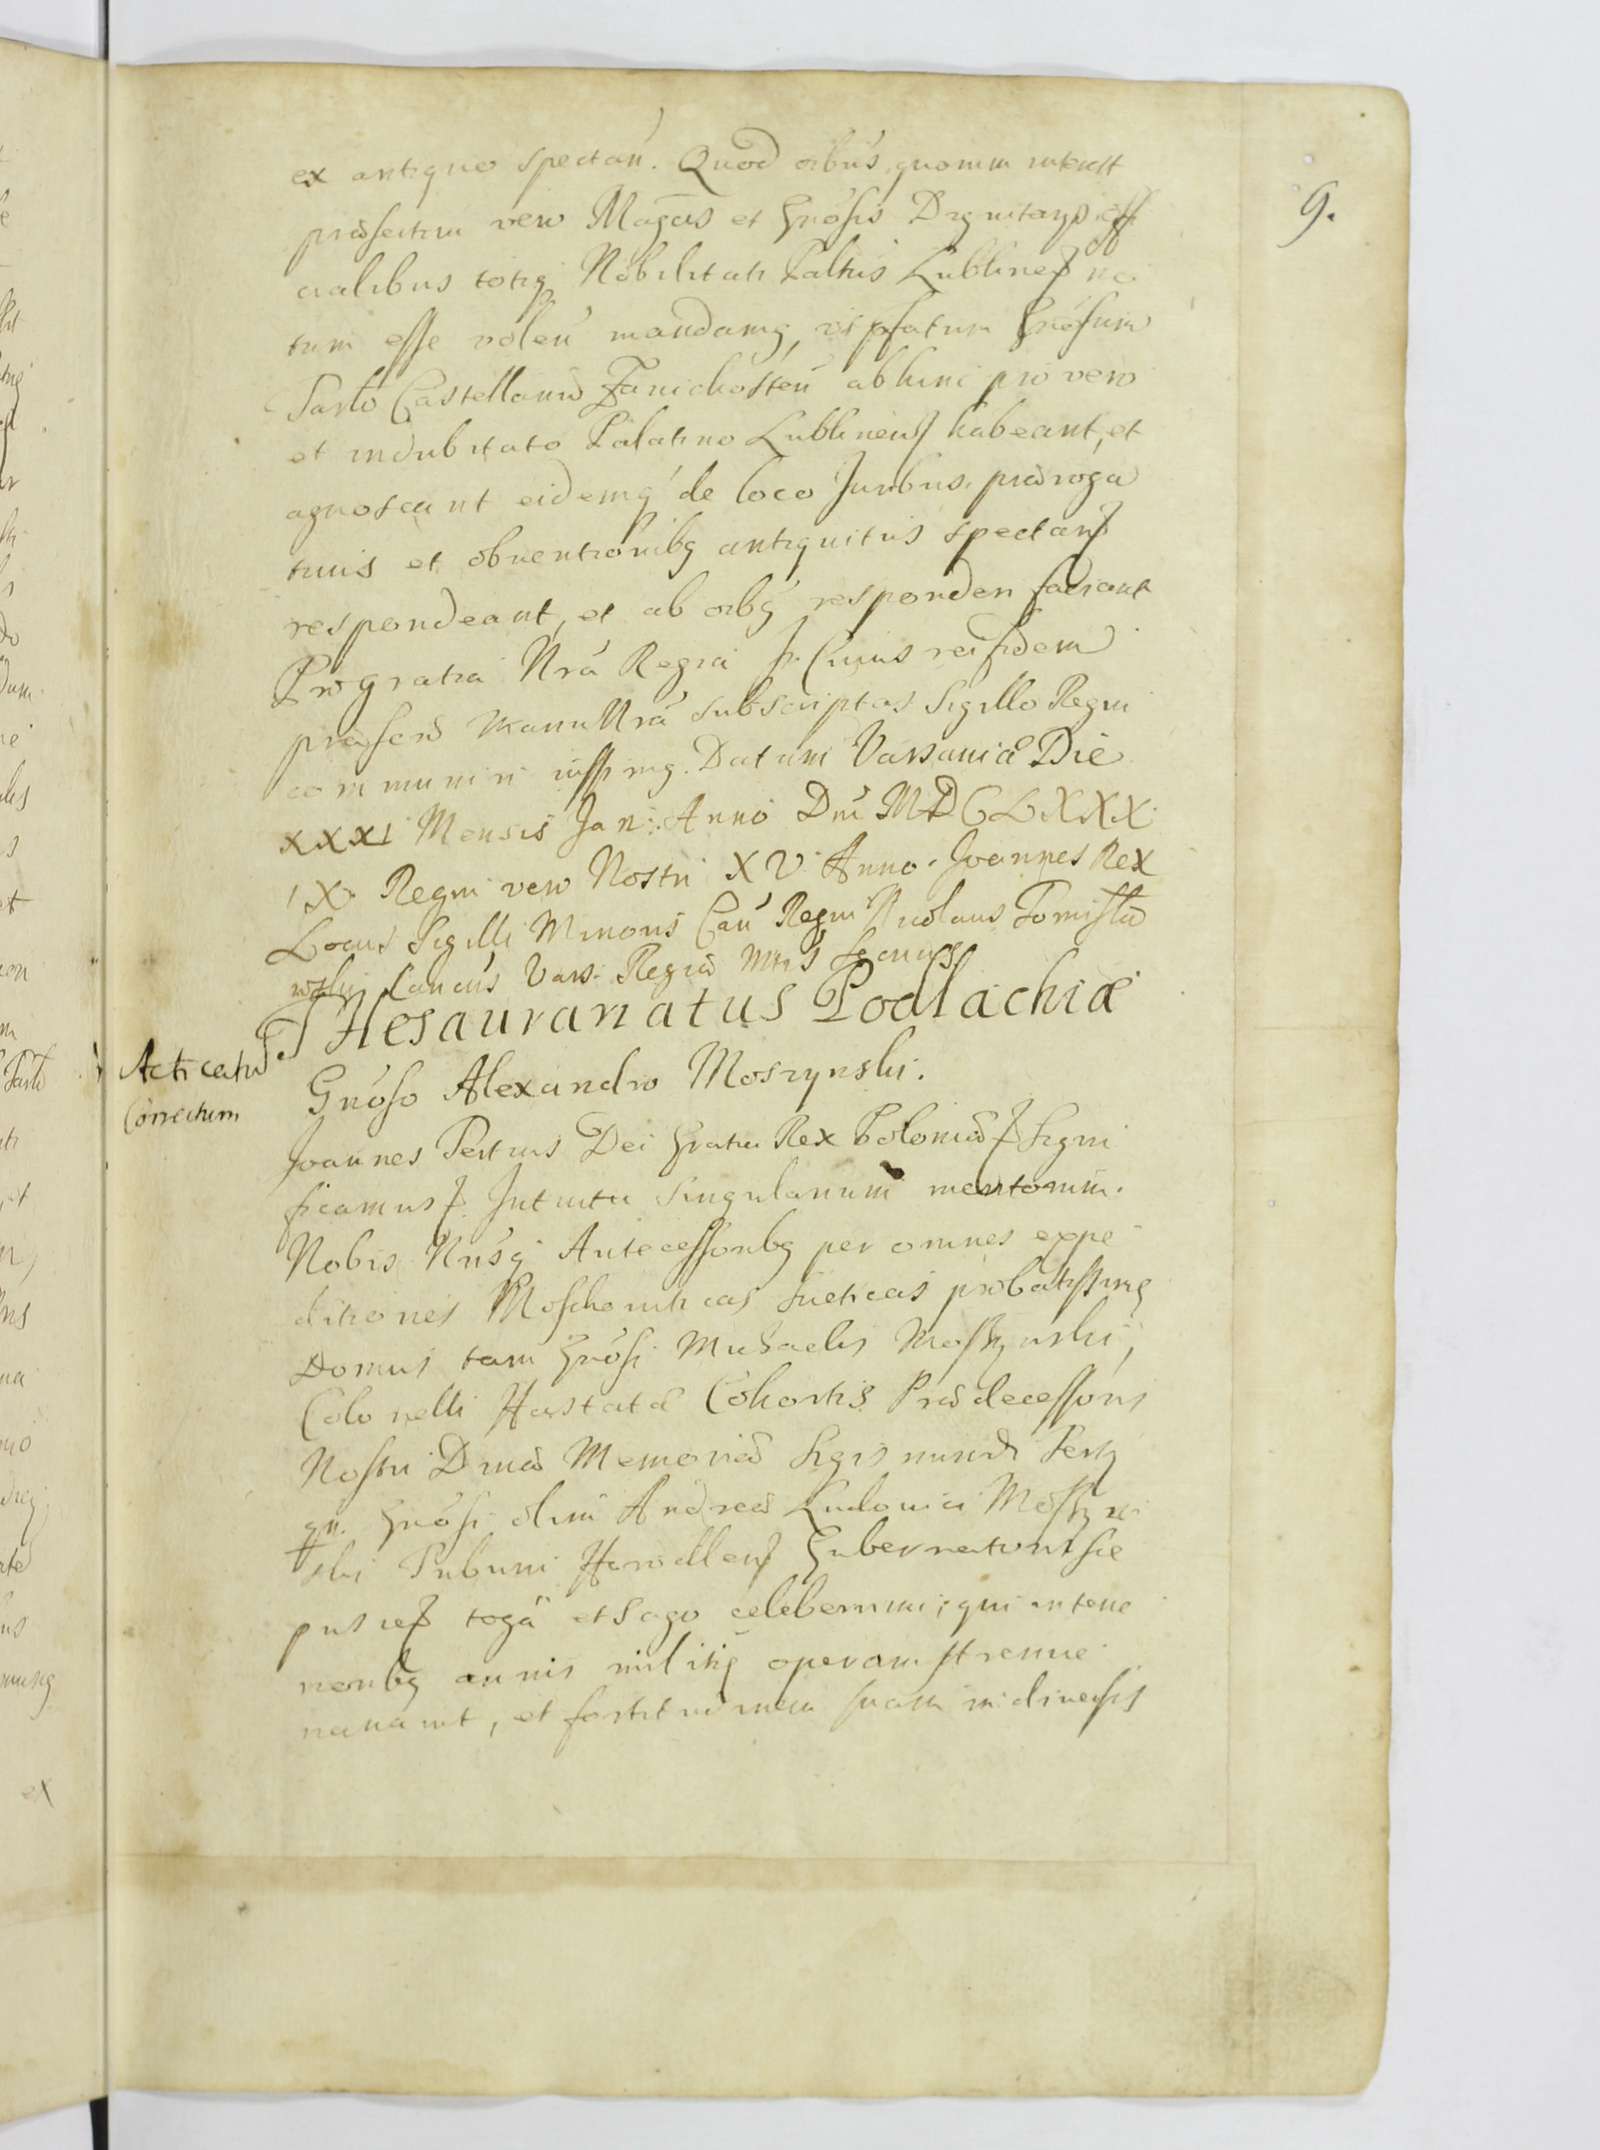 9.
ex antiquo spectań. Quod oibús quorum interest
præsertim vero Magcis et Gnósis Dignitariis offi
cialibus totiq Nobilitati Paltús Lublineń no
tum esse voleń mandamq, ut pfatum Gnósum
Tarło Castellanū Zawichosteń abhinc pro vero
et indubitato Palatino Lublineń habeant, et
agnoscant eidemq de loco Juribus, præroga
tivis et obventionibq antiquitus spectań
respondeant, et ab oibq responderi faciant
Pro gratia Nrá Regia In Cuius rei fidem
præsens Manu Nrá subscriptas Sigillo Regni
communiri iussimq. Datum Varsaviæ Die
XXXI Mensis Jan: Anno Dni MDCLXXX
IX Regni vero Nostri XV Anno. Joannes Rex
Locus Sigilli Minoris Can Regni Nicolaus Tomisła
wski Cancus Vars. Regiæ Mtis Secrius
THesaurariatus Podlachiæ
Acticatū
Correctum
Gnóso Alexandro Moszynski.
Joannes Tertius Dei Gratia Rex Poloniæ Signi
ficamus Intuitu singularium meritorum
Nobis Nrisq Antecessoribq per omnes expe
ditiones Moschoviticas Sueticas probatissimę
Domus tam Gnósi Michaelis Moszynski,
Colonelli Hastatæ Cohortis Prædecessoris
Nostri Divæ Memoriæ Sigismundi Tertij
qu. Gnósi olim Andreæ Ludovici Moszyń
ski Tribuni Horodleń Gubernatoris
toga et Sago celeberrimi, qui in tene
rioribq annis militię operam strenue
navavit, et fortitudinem suam in diversis